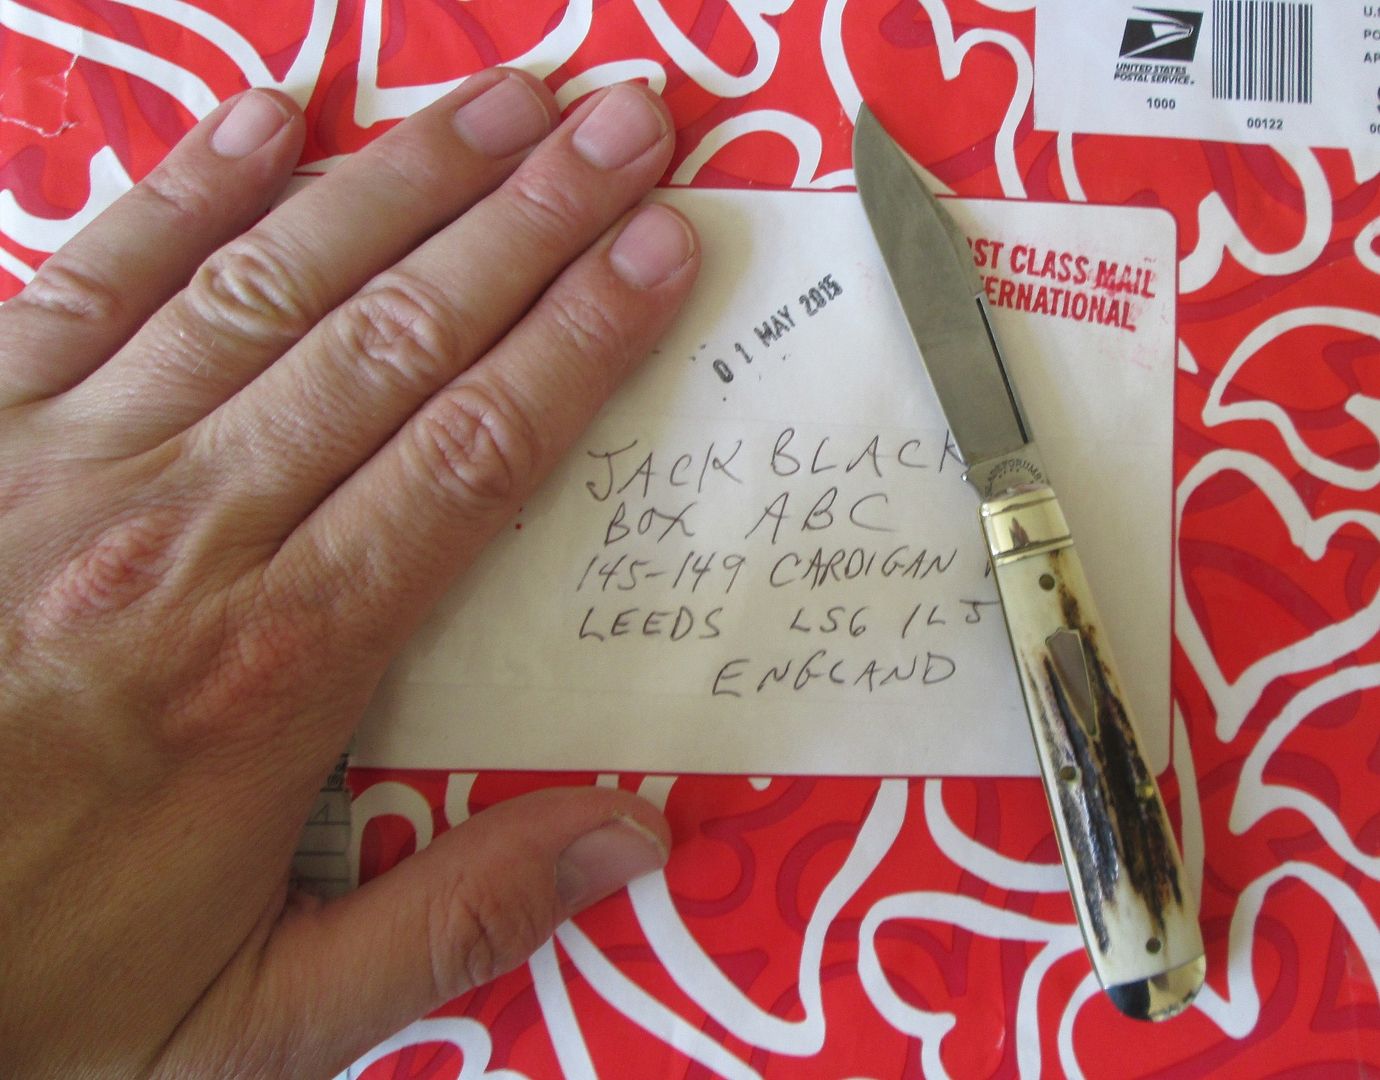 UNITED STATES
POSTAL SERVICE®
1000
00122
U.S
PO
AP
ST CLASS MAIL
ERNATIONAL
01 MAY 2015
JACK BLACK
BOX ABC
145-149 CARDIGAN
LEEDS LS6 1LJ
ENGLAND